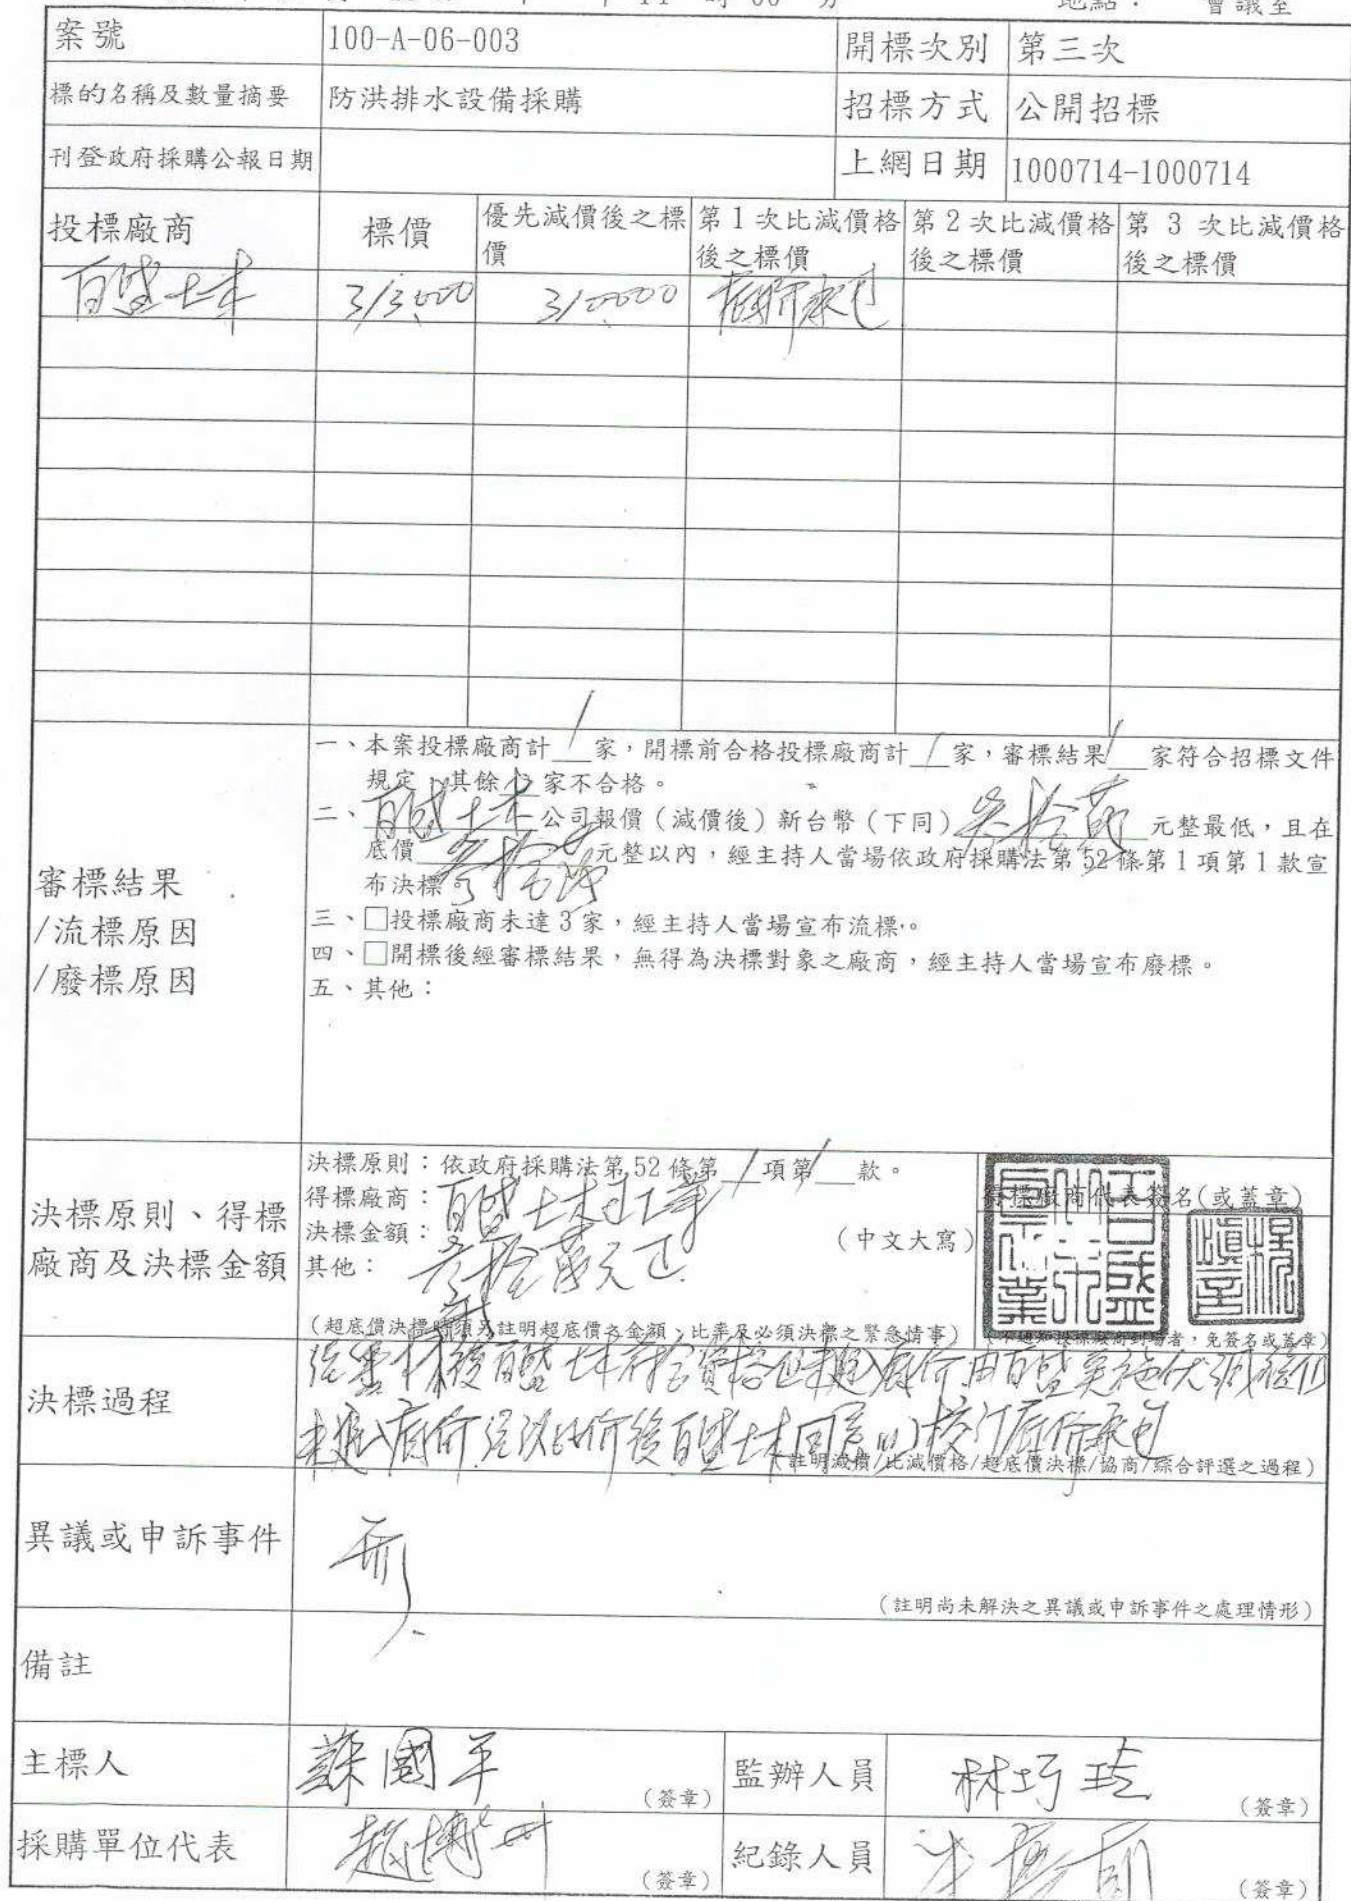 11 時 00 分 地點： 會議室
案號 100-A-06-003 開標次別 第三次
標的名稱及數量摘要 防洪排水設備採購 招標方式 公開招標
刊登政府採購公報日期 上網日期 1000714-1000714
投標廠商 標價 優先減價後之標價 第1次比減價格後之標價 第2次比減價格後之標價 第 3 次比減價格後之標價
百盛土木 313000 310000 底價承包
審標結果
/流標原因
/廢標原因
一、本案投標廠商計 1 家，開標前合格投標廠商計 1 家，審標結果 1 家符合招標文件
規定，其餘 家不合格。
二、百盛土木 公司報價（減價後）新台幣（下同） 元整最低，且在
底價 元整以內，經主持人當場依政府採購法第52條第1項第1款宣
布決標。
三、□投標廠商未達3家，經主持人當場宣布流標。
四、□開標後經審標結果，無得為決標對象之廠商，經主持人當場宣布廢標。
五、其他：
決標原則、得標
廠商及決標金額
決標原則：依政府採購法第52條第 1 項第 1 款。
得標廠商：百盛土木
決標金額：參拾萬元正 （中文大寫）
其他：
得標廠商代表簽名(或蓋章)
（超底價決標時須另註明超底價之金額、比率及必須決標之緊急情事）
者，免簽名或蓋章）
決標過程
百盛土木符合資格
後百盛土木同意以核訂底價承包
（註明減價/比減價格/超底價決標/協商/綜合評選之過程）
異議或申訴事件 無
（註明尚未解決之異議或申訴事件之處理情形）
備註
主標人 蘇國平 （簽章） 監辦人員 林巧 （簽章）
採購單位代表 趙博 （簽章） 紀錄人員 （簽章）